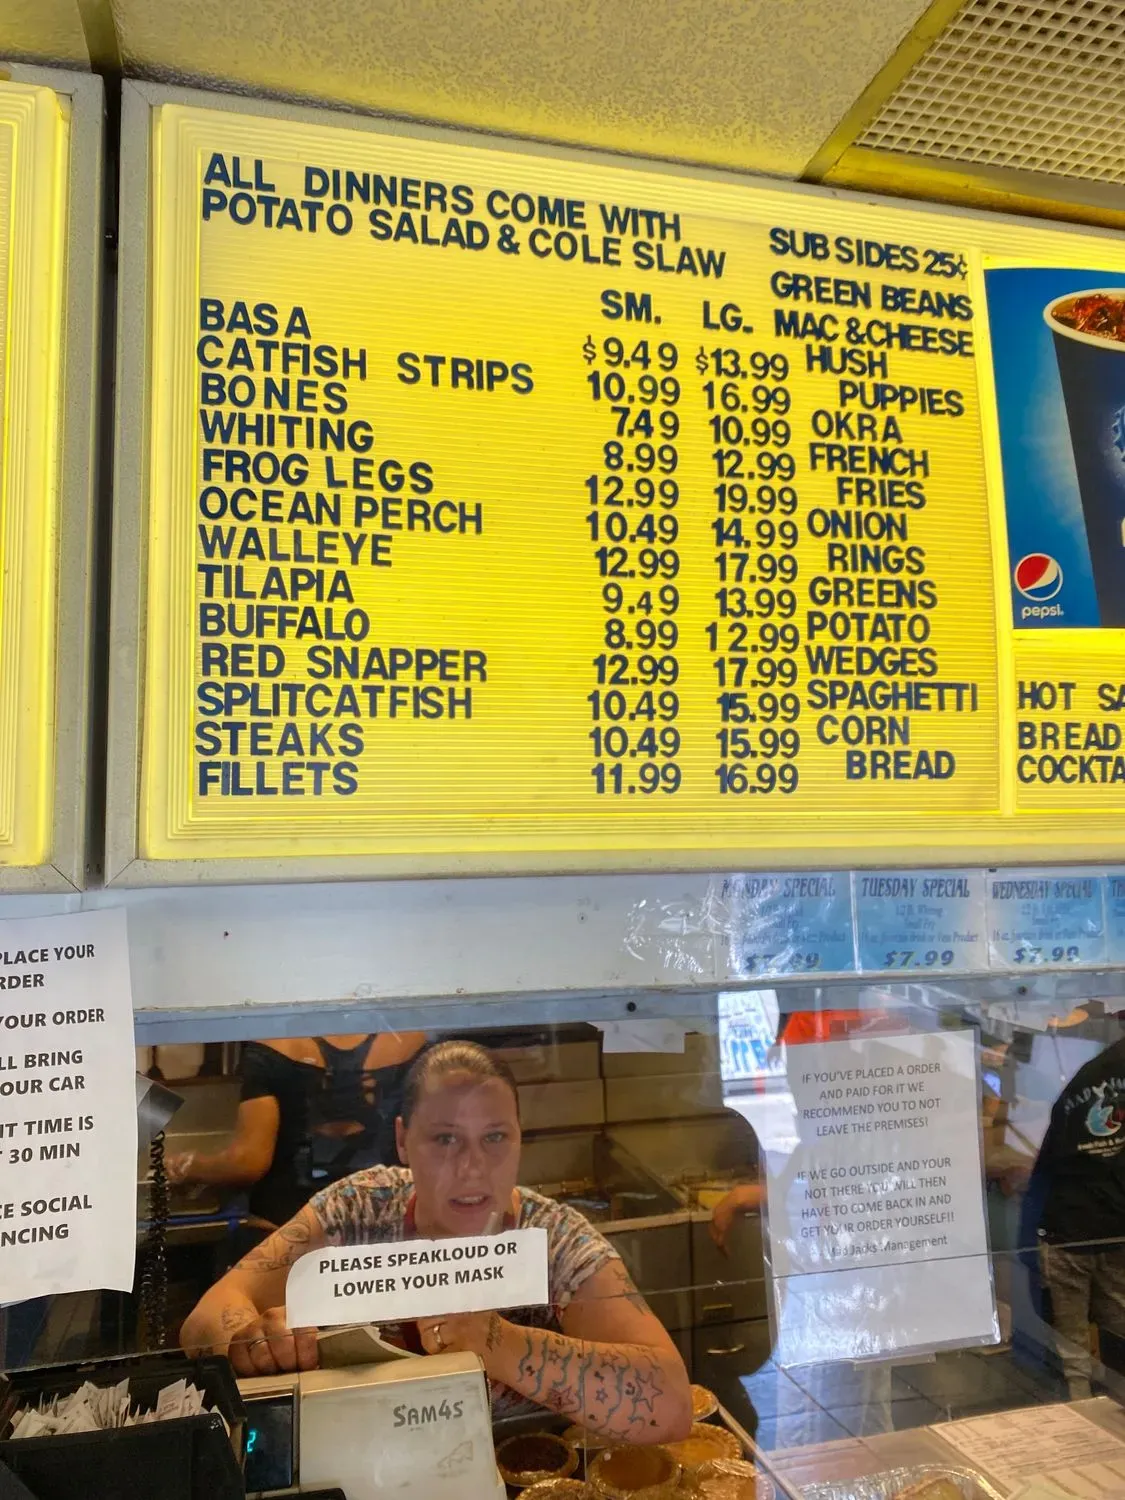 ALL DINNERS COME WITH
POTATO SALAD & COLE SLAW
SM. LG.
BASA $9.49 $13.99
CATFISH STRIPS 10.99 16.99
BONES 7.49 10.99
WHITING 8.99 12.99
FROG LEGS 12.99 19.99
OCEAN PERCH 10.49 14.99
WALLEYE 12.99 17.99
TILAPIA 9.49 13.99
BUFFALO 8.99 12.99
RED SNAPPER 12.99 17.99
SPLITCATFISH 10.49 15.99
STEAKS 10.49 15.99
FILLETS 11.99 16.99
SUB SIDES 25¢
GREEN BEANS
MAC & CHEESE
HUSH
PUPPIES
OKRA
FRENCH
FRIES
ONION
RINGS
GREENS
POTATO
WEDGES
SPAGHETTI
CORN
BREAD
pepsi.
HOT
BREAD
MONDAY SPECIAL
$7.99
TUESDAY SPECIAL
1/2 lb. Whiting
Small Fry
$7.99
WEDNESDAY SPECIAL
$7.99
PLACE YOUR
YOUR ORDER
BRING
OUR CAR
TIME IS
30 MIN
SOCIAL
PLEASE SPEAKLOUD OR
LOWER YOUR MASK
IF YOU'VE PLACED A ORDER
AND PAID FOR IT WE
RECOMMEND YOU TO NOT
LEAVE THE PREMISES!
IF WE GO OUTSIDE AND YOUR
NOT THERE YOU WILL THEN
HAVE TO COME BACK IN AND
GET YOUR ORDER YOURSELF!!
Mad Jacks Management
SAM4S
2